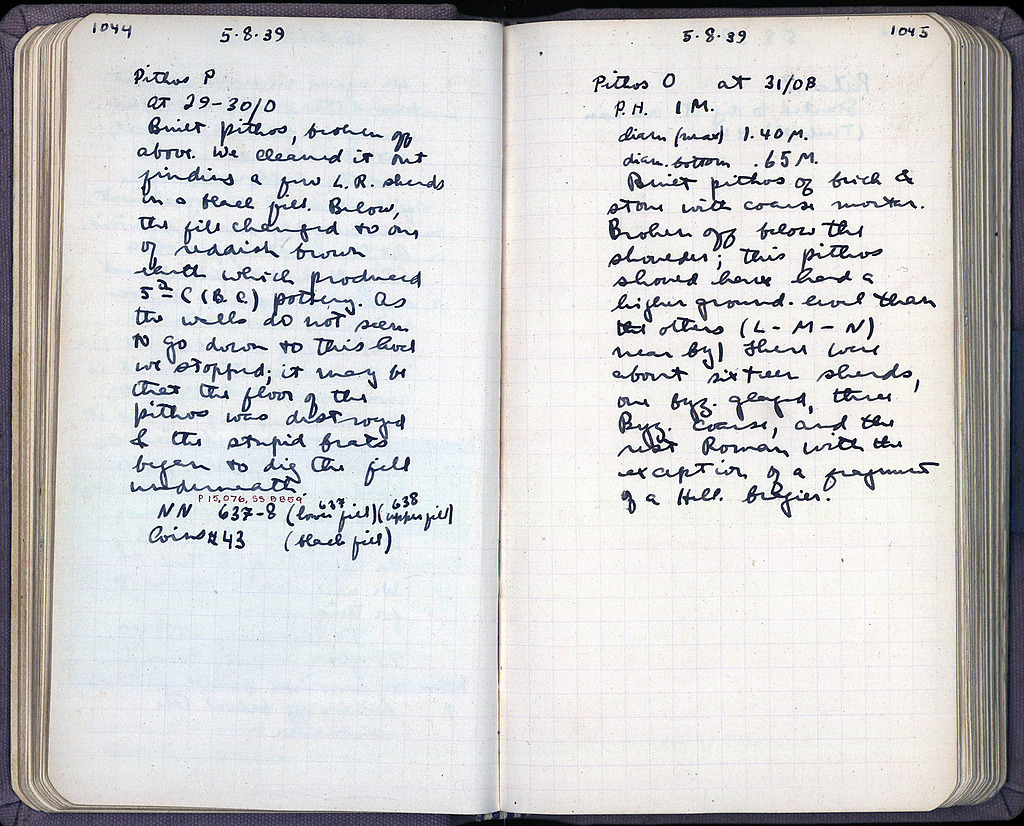 1044
5·8·39
Pithos P
at 29-30/O
Built pithos, broken off
above. We cleaned it out
finding a few L.R. sherds
in a black fill. Below,
the fill changed to one
of reddish brown
earth which produced
5th C (B.C.) pottery. As
the walls do not seem
to go down to this level
we stopped; it may be
that the floor of the
pithos was destroyed
& the stupid brats
began to dig the fill
underneath.
P 15,076, SS 8859
NN 637-8 (lower fill) 637 (upper fill) 638
Coins #43 (black fill)
1045
5·8·39
Pithos O at 31/OB
P.H. 1 M.
diam (max) 1.40 M.
diam. bottom .65 M.
Built pithos of brick &
stone with coarse mortar.
Broken off below the
shoulder; this pithos
should have had a
higher ground level than
the others (L-M-N)
near by) There were
about sixteen sherds,
one byz. glazed, three
Byz. coarse, and the
rest Roman with the
exception of a fragment
of a Hell. brazier.